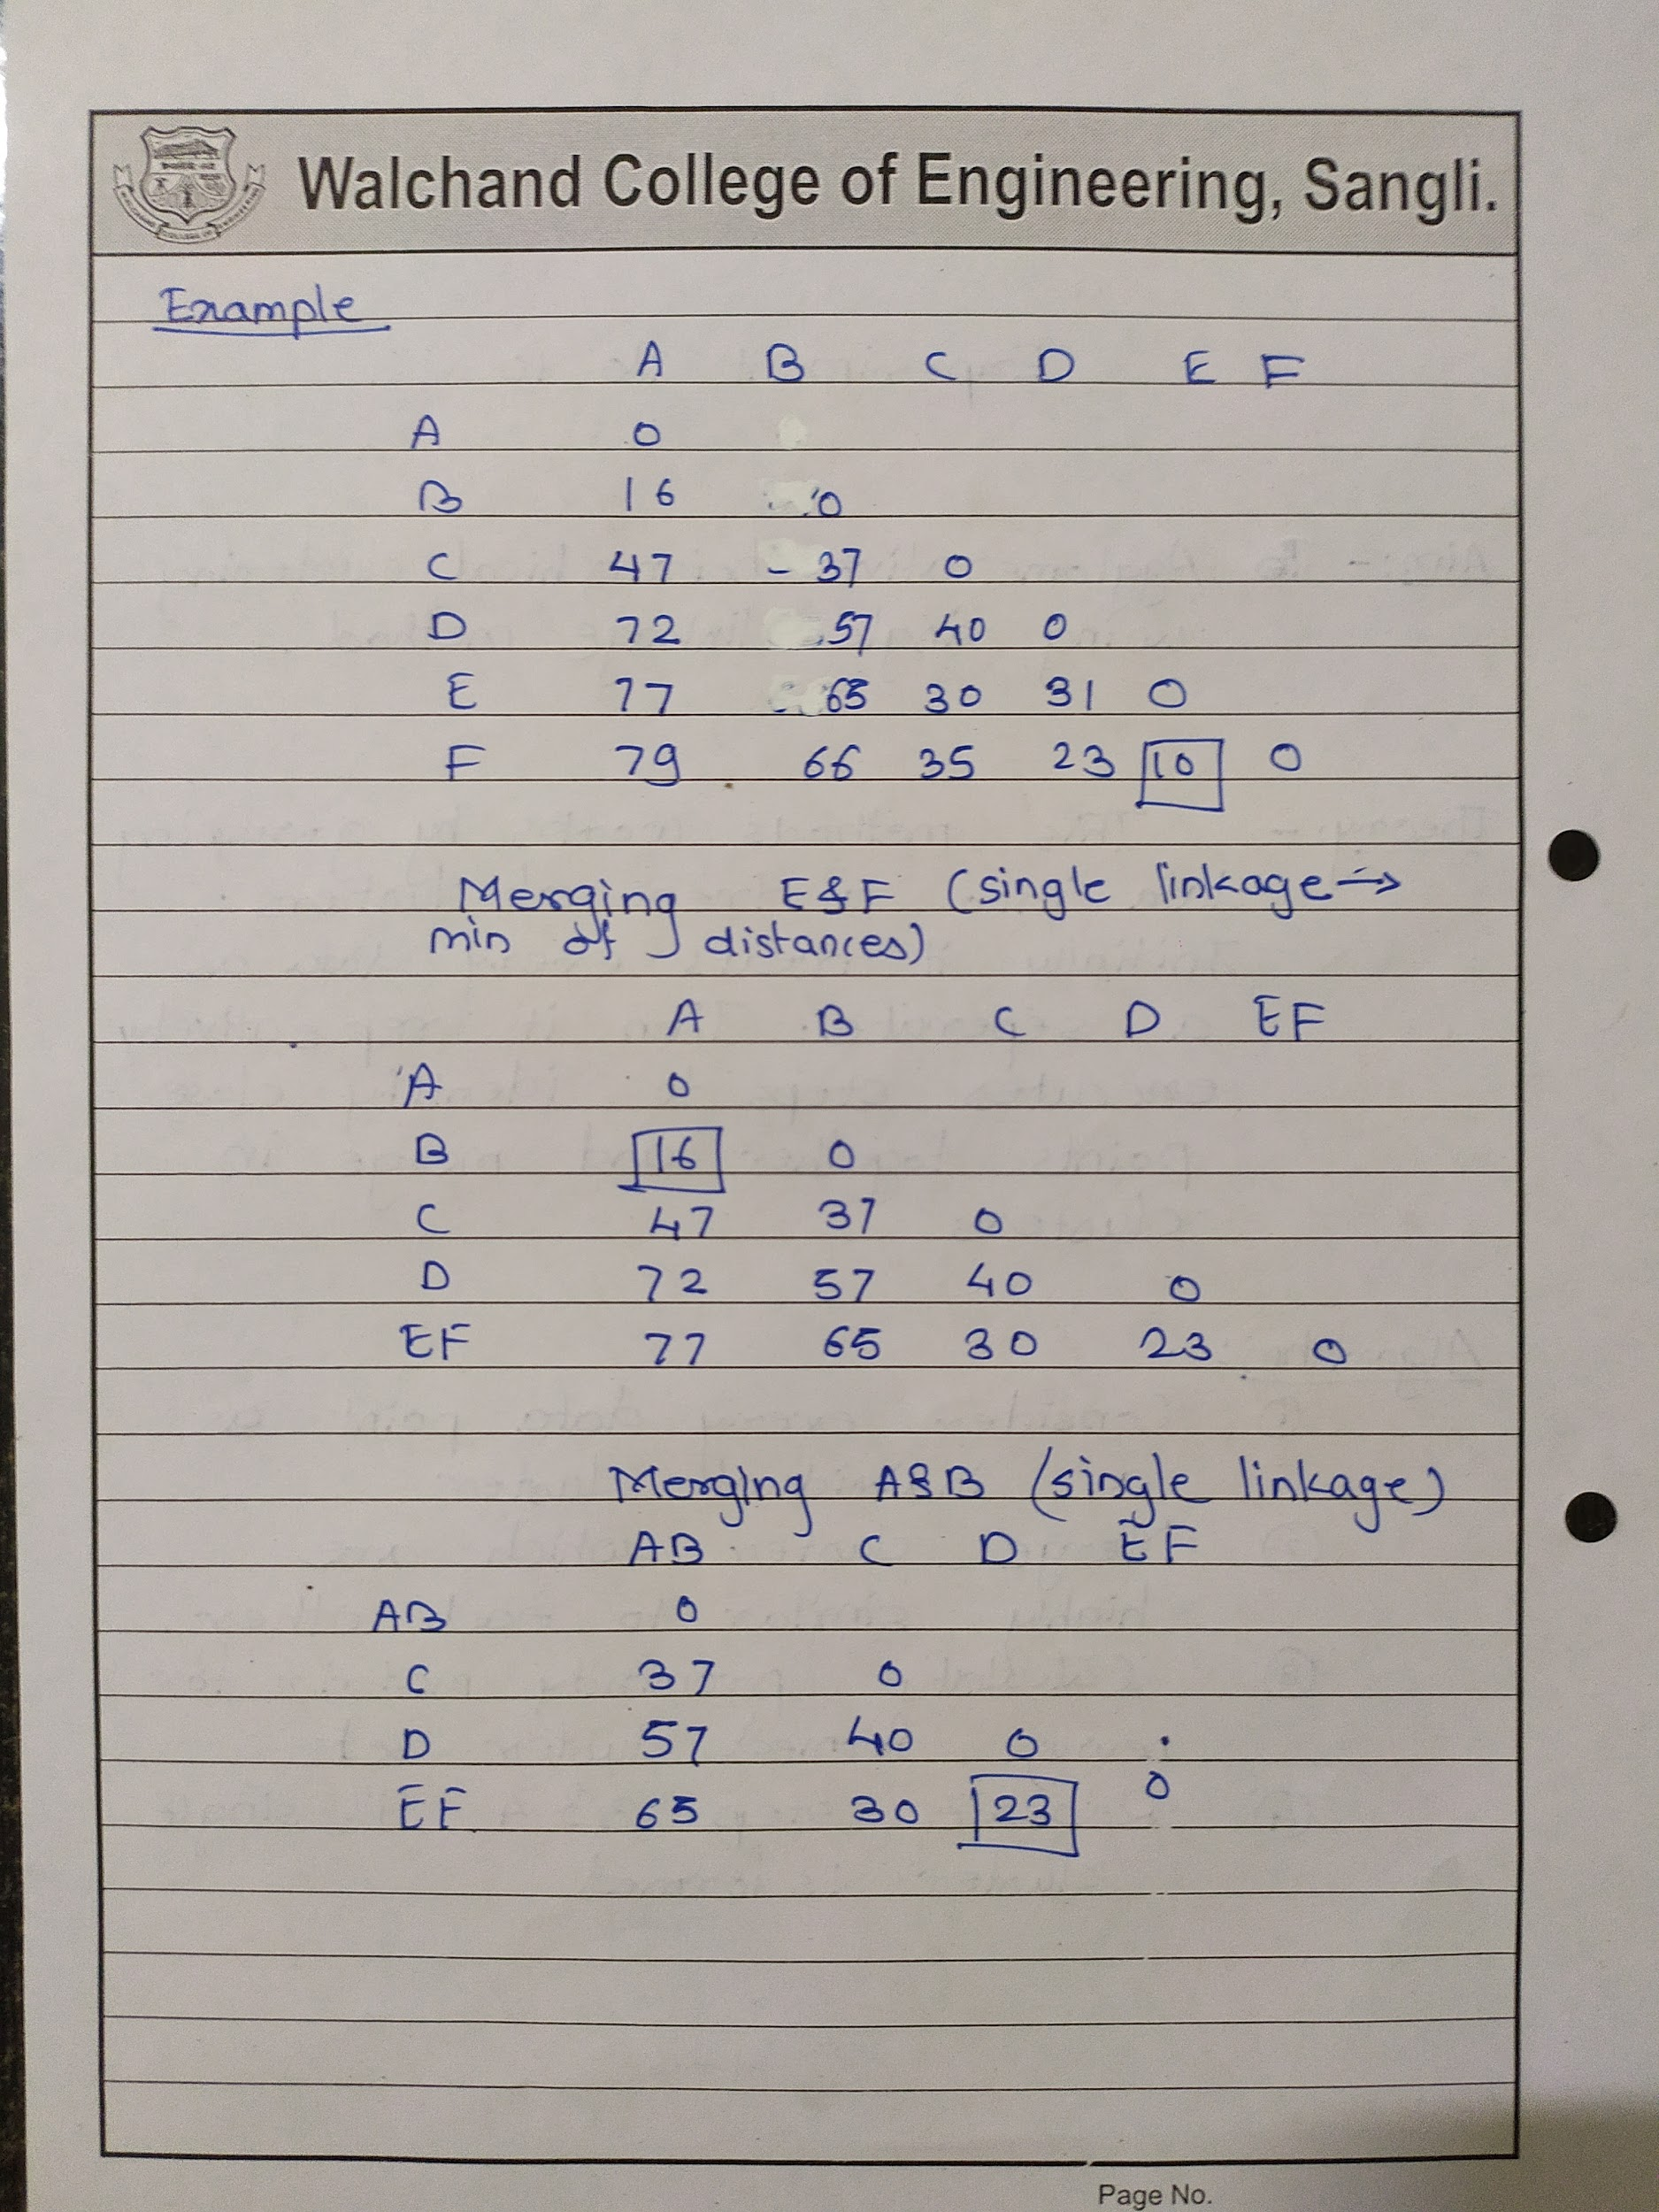 Walchand College of Engineering, Sangli.
Example
A B C D E F
A 0
B 16 0
C 47 - 37 0
D 72 57 40 0
E 77 65 30 31 0
F 79 66 35 23 10 0
Merging E&F (single linkage →
min of distances)
A B C D EF
A 0
B 16 0
C 47 37 0
D 72 57 40 0
EF 77 65 30 23 0
Merging A&B (single linkage)
AB C D EF
AB 0
C 37 0
D 57 40 0
EF 65 30 23 0
Page No.